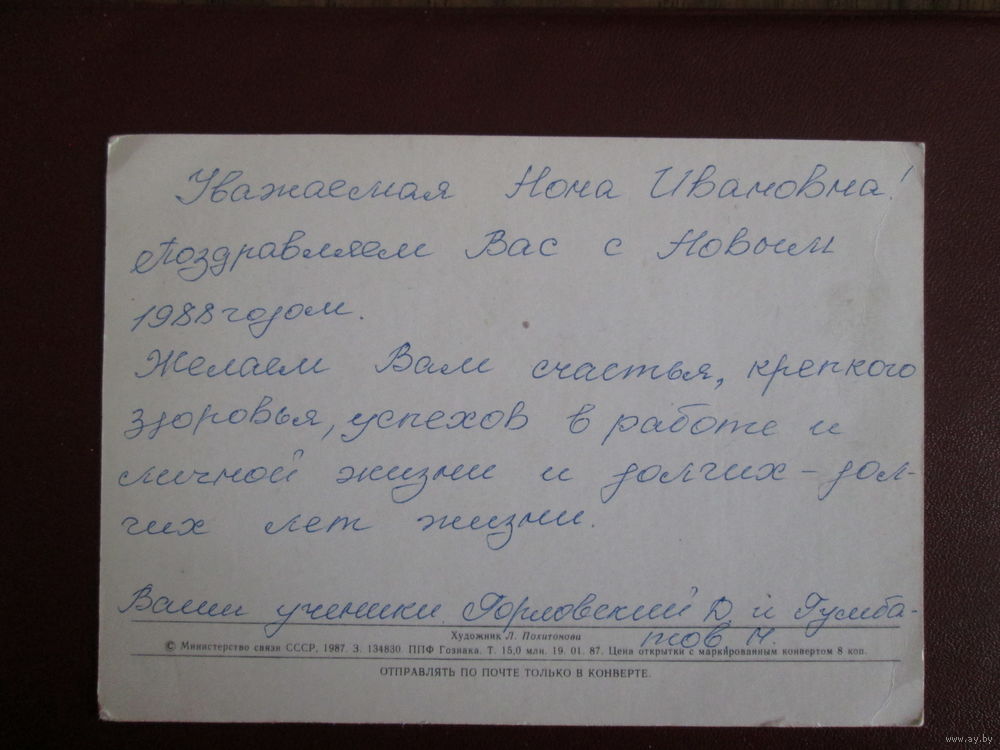 Уважаемая Нона Ивановна!
Поздравляем Вас с Новым
1988 годом.
Желаем Вам счастья, крепкого
здоровья, успехов в работе и
личной жизни и долгих-дол-
гих лет жизни.
Ваши ученики Горловский Д. и Гумба-
тов Н.
Художник Л. Похитонова
© Министерство связи СССР, 1987. З. 134830. ППФ Гознака. Т. 15,0 млн. 19. 01. 87. Цена открытки с маркированным конвертом 8 коп.
ОТПРАВЛЯТЬ ПО ПОЧТЕ ТОЛЬКО В КОНВЕРТЕ.
www.ay.by